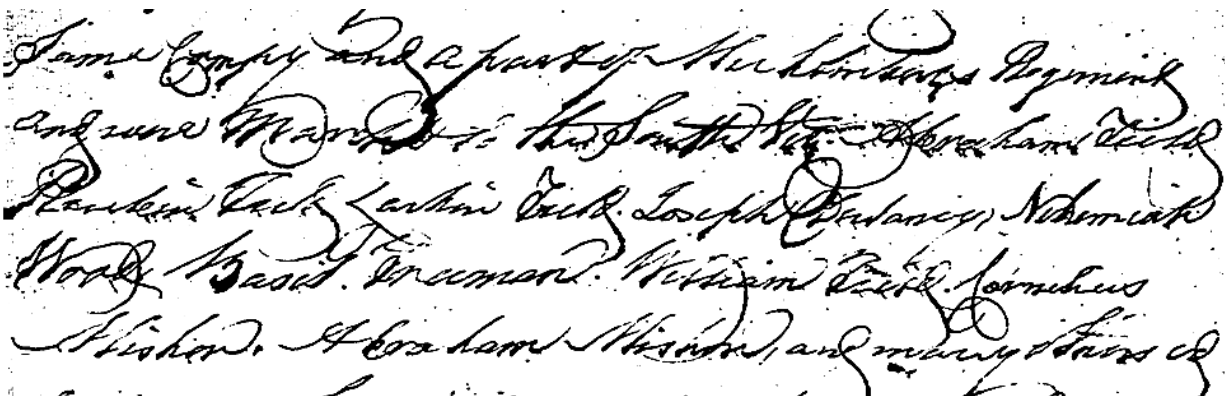 Same Compy and a part of Muhlenbergs Regiment
and were Marched to the South Viz. Abraham Field
Reuben Field Larkin Field. Joseph Delaney, Nehemiah
Woods Basil. Freeman. William Field. Cornelius
Mishon. Abraham Mishon, and many others of